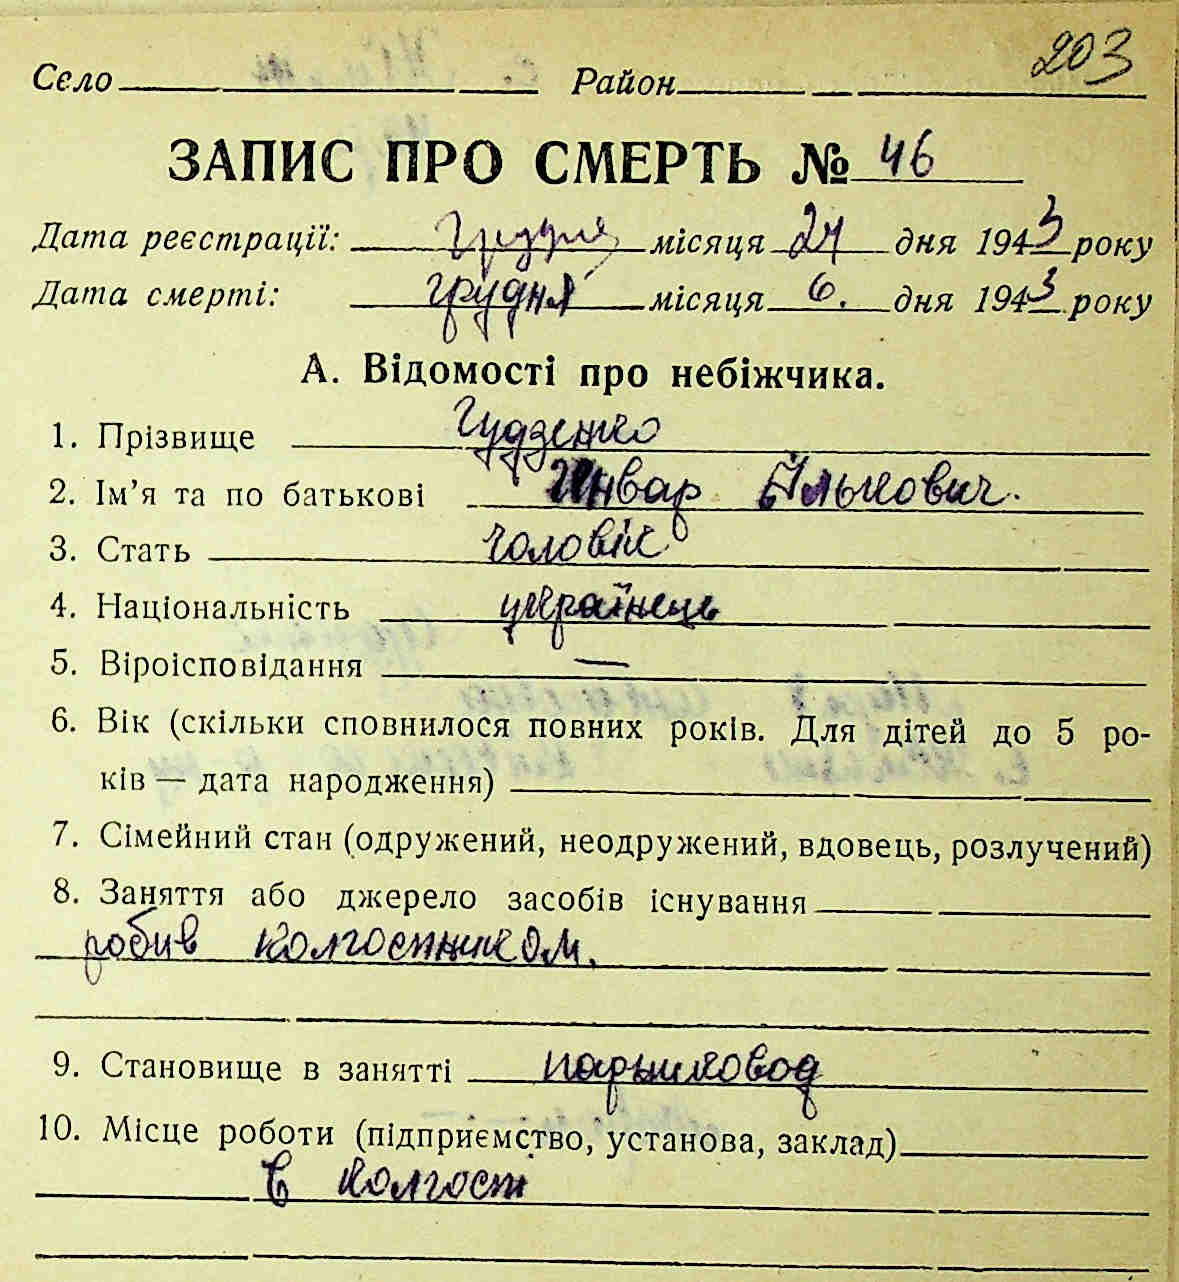 203
Село Район
ЗАПИС ПРО СМЕРТЬ № 46
Дата реєстрації: Грудня місяця 24 дня 1943 року
Дата смерті: грудня місяця 6. дня 1943 року
А. Відомості про небіжчика.
1. Прізвище Гудзенко
2. Ім’я та по батькові
3. Стать чоловік
4. Національність українець
5. Віроісповідання —
6. Вік (скільки сповнилося повних років. Для дітей до 5 ро-
ків — дата народження)
7. Сімейний стан (одружений, неодружений, вдовець, розлучений)
8. Заняття або джерело засобів існування
робив колгоспником.
9. Становище в занятті парниковод
10. Місце роботи (підприємство, установа, заклад)
в колгоспі